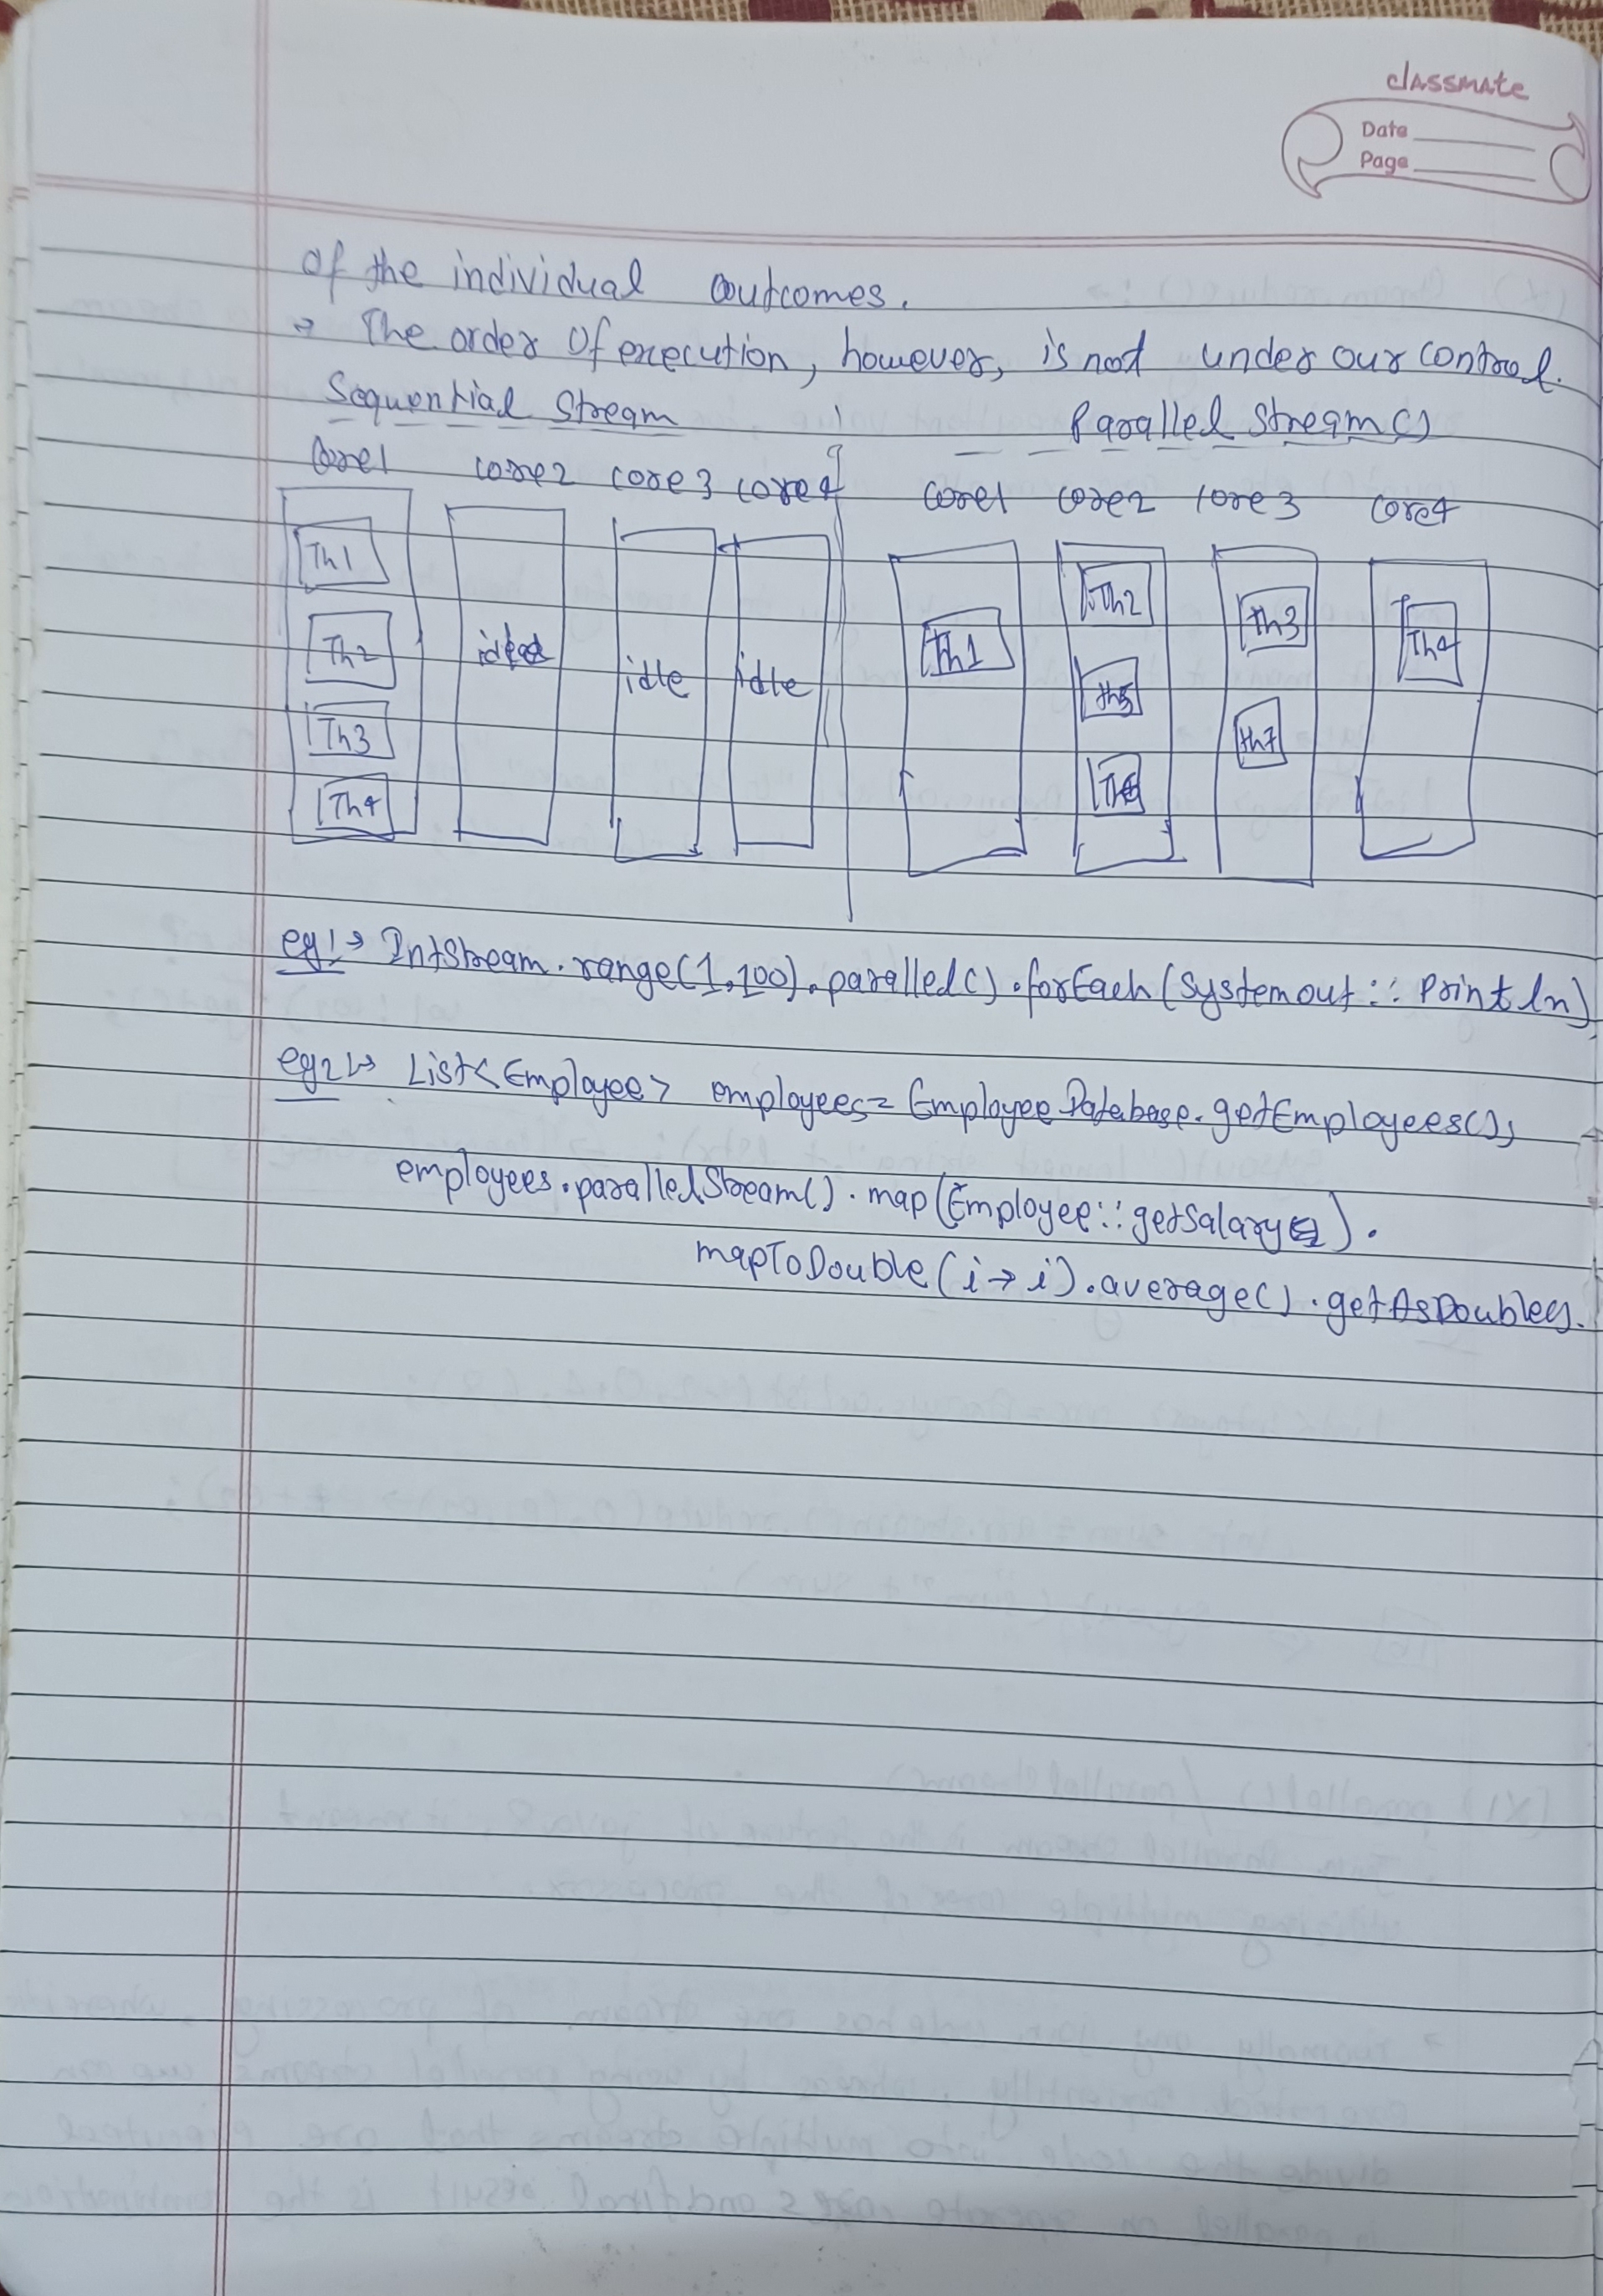 classmate
Date
Page
of the individual outcomes.
→ The order of execution, however, is not under our control.
Sequential Stream Parallel Stream()
Core1 core2 core3 core4 core1 core2 core3 core4
Th1 Th2 Th3
Th2 idle idle idle Th1 Th5 Th4
Th3 Th7
Th4 Th6
eg1→ IntStream.range(1,100).parallel().forEach(System.out::println)
eg2→ List<Employee> employees= EmployeeDatabase.getEmployees();
employees.parallelStream().map(Employee::getSalary).
mapToDouble(i→i).average().getAsDouble().